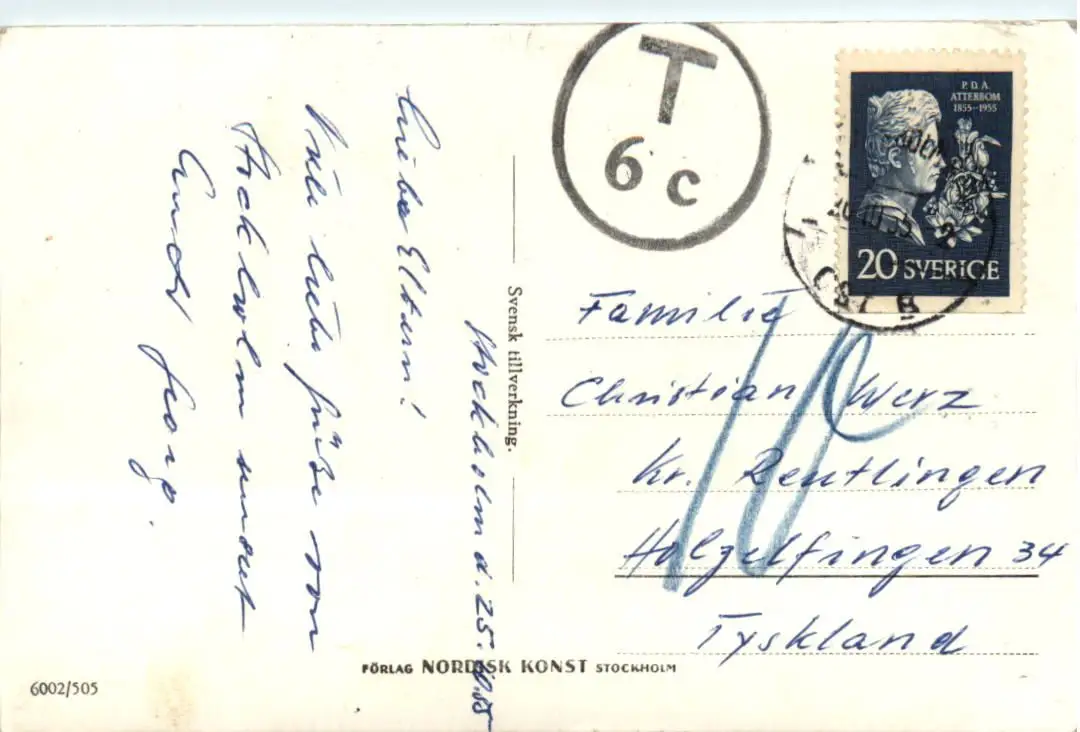 T
6 c
P. D. A.
ATTERBOM
1855–1955
20 SVERIGE
Stockholm d. 25.
Liebe Eltern!
Viele liebe Grüße von
Stockholm sendet
Georg.
Svensk tillverkning.
Familie
Christian Werz
Kr. Reutlingen
Holzelfingen 34
Tyskland
10
FÖRLAG NORDISK KONST STOCKHOLM
6002/505